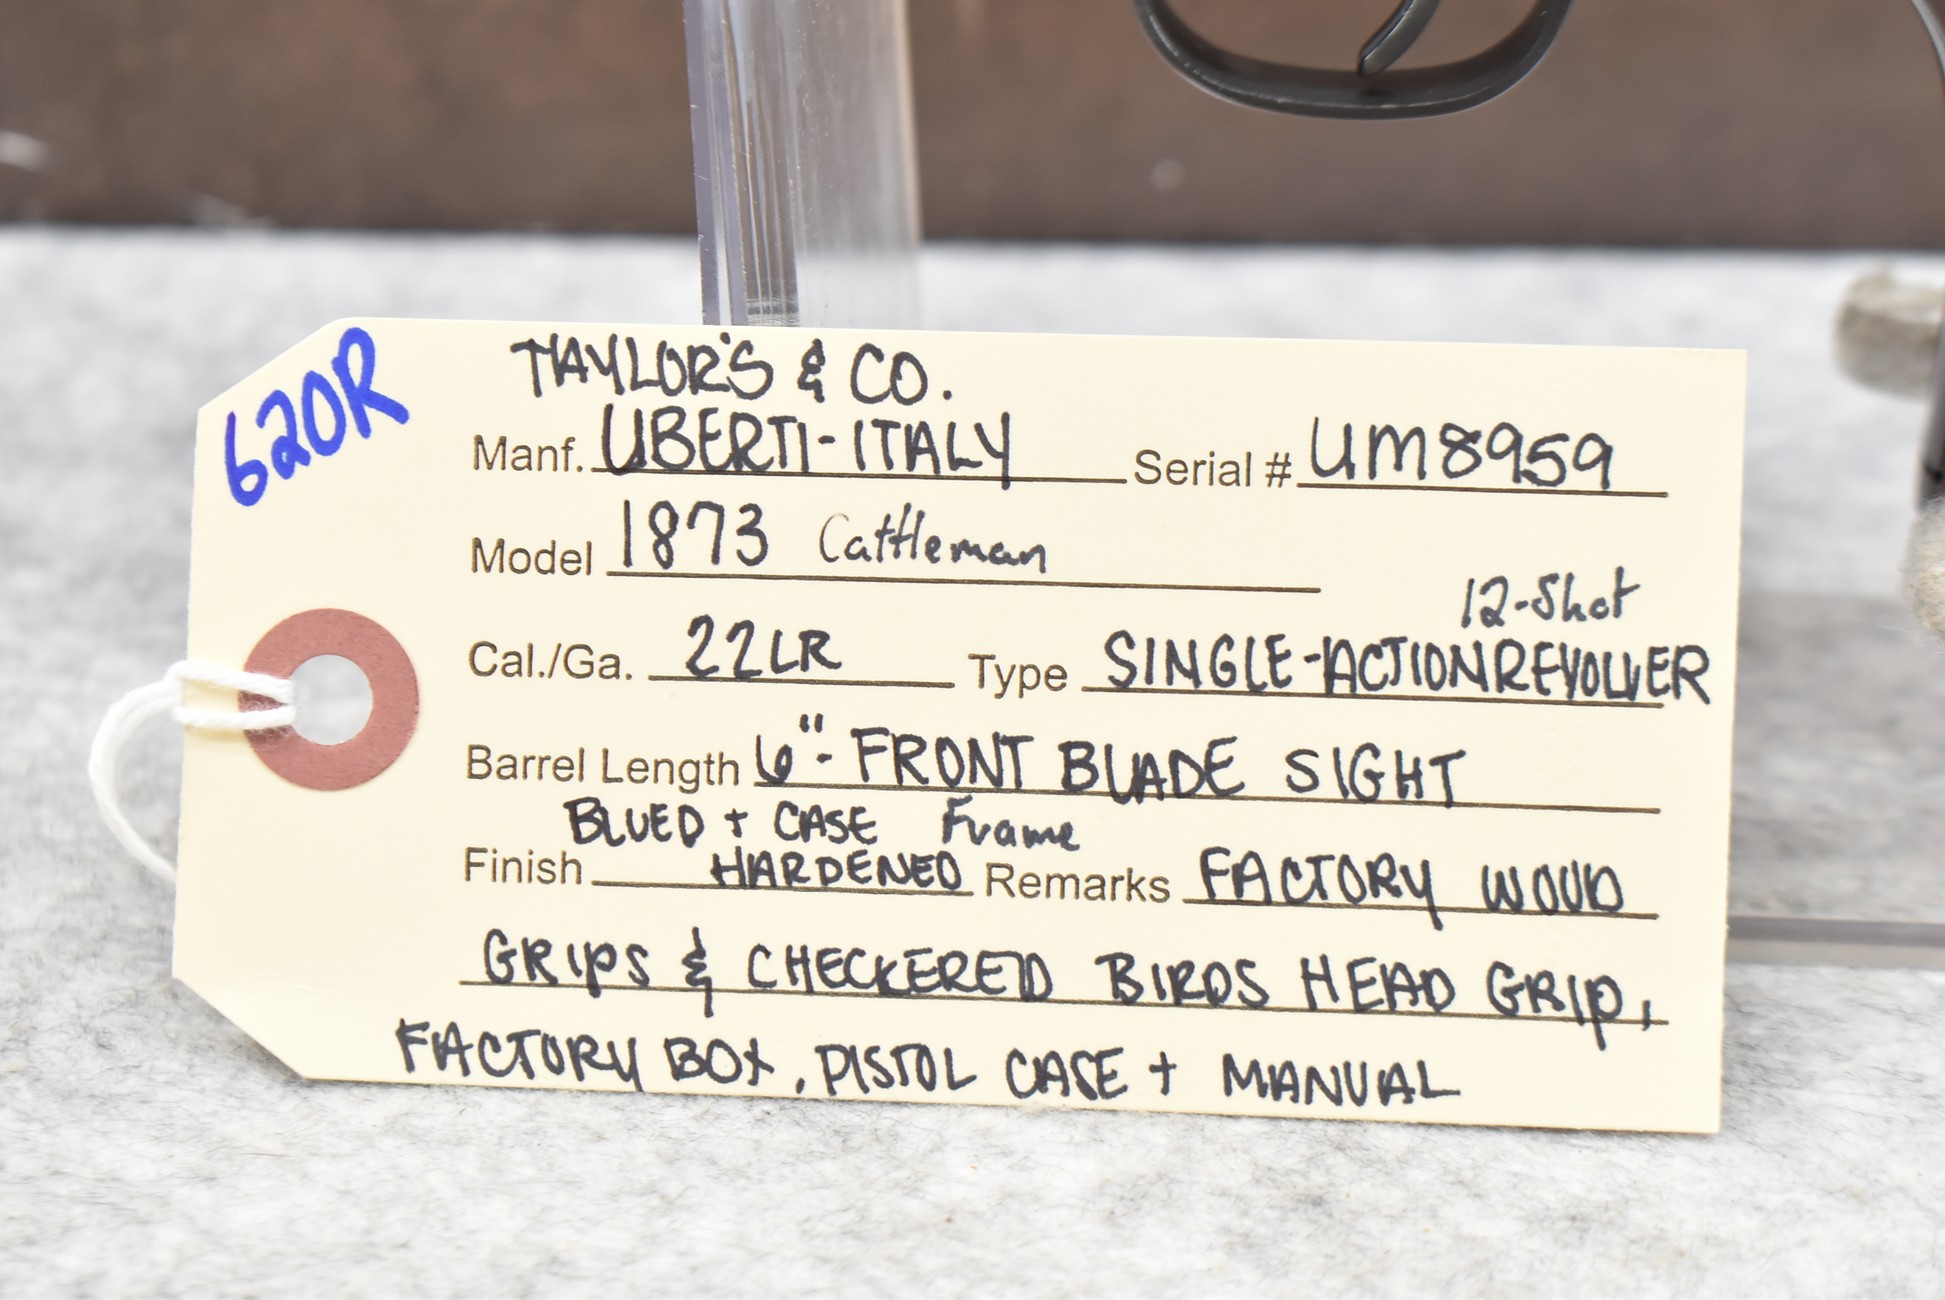 620R
TAYLOR'S & CO.
Manf. UBERTI-ITALY Serial # UM8959
Model 1873 Cattleman
12-Shot
Cal./Ga. 22LR Type SINGLE-ACTION REVOLVER
Barrel Length 6"- FRONT BLADE SIGHT
BLUED + CASE Frame
Finish HARDENED Remarks FACTORY WOOD
GRIPS & CHECKERED BIRDS HEAD GRIP,
FACTORY BOX, PISTOL CASE + MANUAL